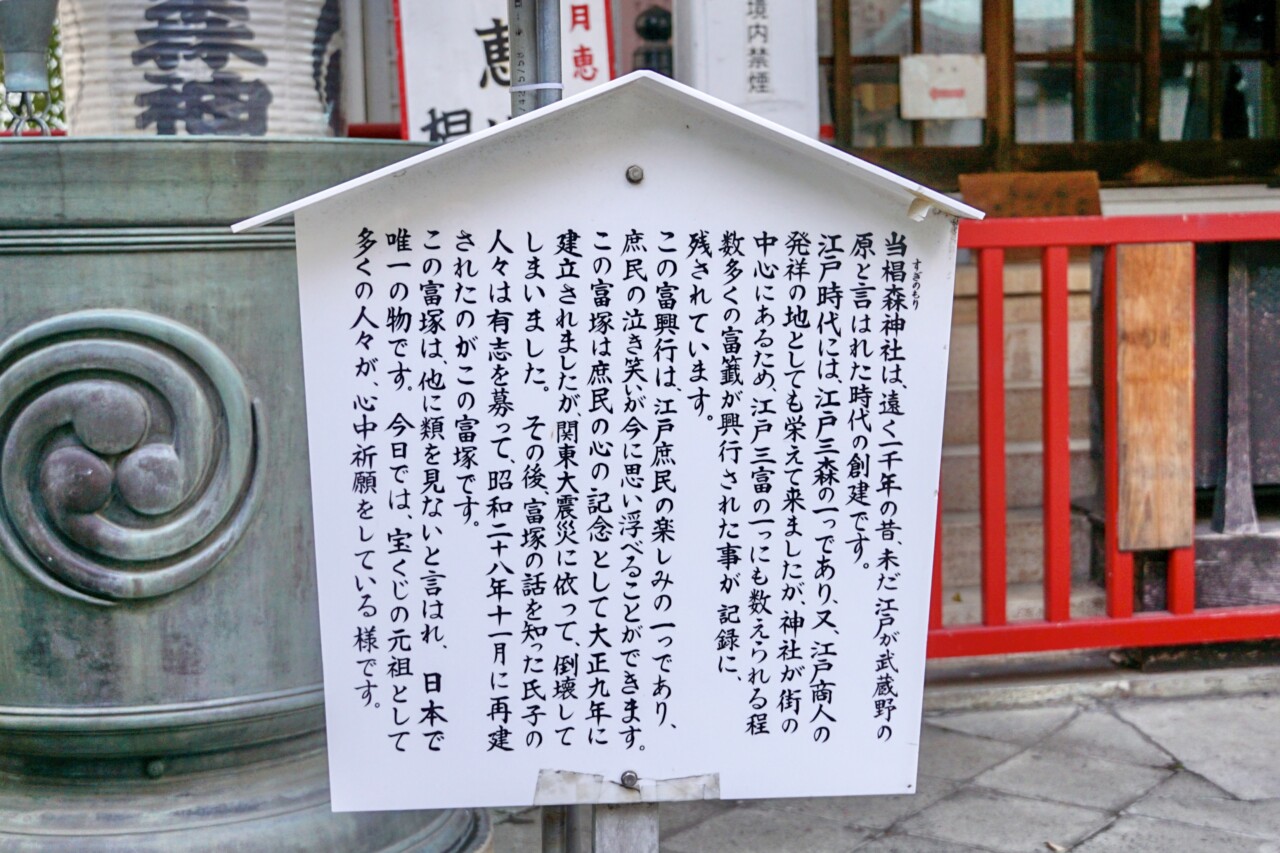 すぎのもり
当椙森神社は、遠く一千年の昔、未だ江戸が武蔵野の
原と言はれた時代の創建です。
江戸時代には、江戸三森の一つであり、又、江戸商人の
発祥の地としても栄えて来ましたが、神社が街の
中心にあるため、江戸三富の一つにも数えられる程
数多くの富籤が興行された事が記録に、
残されています。
この富興行は、江戸庶民の楽しみの一つであり、
庶民の泣き笑いが今に思い浮べることができます。
この富塚は庶民の心の記念として大正九年に
建立されましたが、関東大震災に依って、倒壊して
しまいました。その後、富塚の話を知った氏子の
人々は有志を募って、昭和二十八年十一月に再建
されたのがこの富塚です。
この富塚は、他に類を見ないと言はれ、日本で
唯一の物です。今日では、宝くじの元祖として
多くの人々が、心中祈願をしている様です。
境内禁煙
月恵
恵
椙
森神